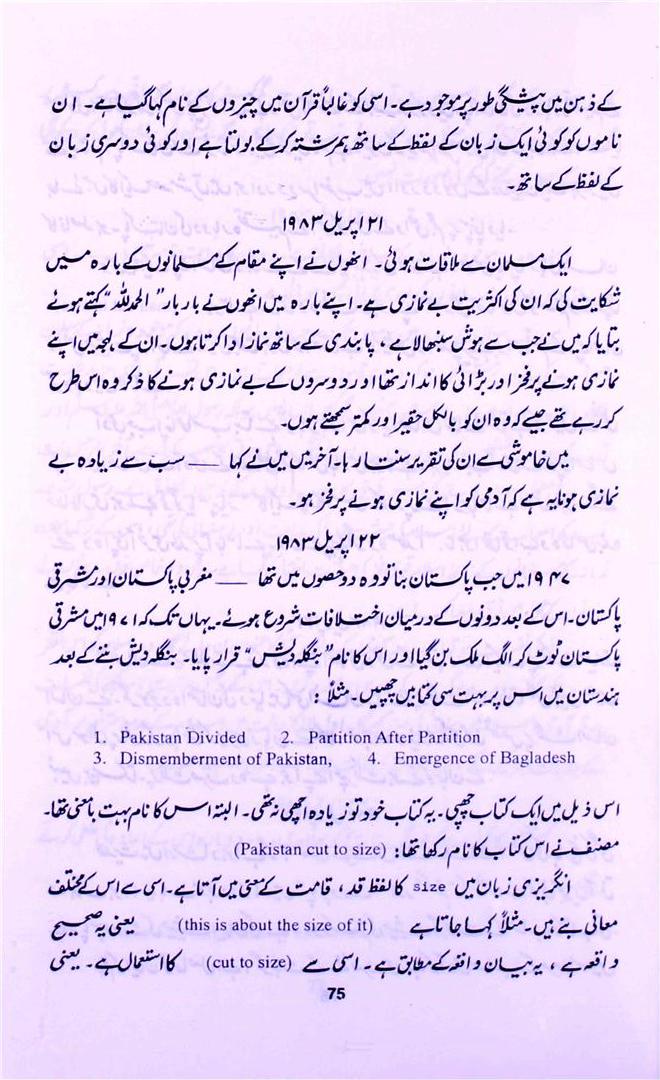 کے ذہن میں پیشگی طور پر موجود ہے۔ اسی کو غالباً قرآن میں چیزوں کے نام کہا گیا ہے۔ ان
ناموں کو کوئی ایک زبان کے لفظ کے ساتھ ہم رشتہ کر کے بولتا ہے اور کوئی دوسری زبان
کے لفظ کے ساتھ۔
۲۱ اپریل ۱۹۸۳
ایک مسلمان سے ملاقات ہوئی۔ انھوں نے اپنے مقام کے مسلمانوں کے بارہ میں
شکایت کی کہ ان کی اکثریت بے نمازی ہے۔ اپنے بارہ میں انھوں نے بار بار "الحمد للہ" کہتے ہوئے
بتایا کہ میں نے جب سے ہوش سنبھالا ہے، پابندی کے ساتھ نماز ادا کرتا ہوں۔ ان کے لہجہ میں اپنے
نمازی ہونے پر فخر اور بڑائی کا انداز تھا اور دوسروں کے بے نمازی ہونے کا ذکر وہ اس طرح
کر رہے تھے جیسے کہ وہ ان کو بالکل حقیر اور کمتر سمجھتے ہوں۔
میں خاموشی سے ان کی تقریر سنتا رہا۔ آخر میں میں نے کہا —— سب سے زیادہ بے
نمازی ہونا یہ ہے کہ آدمی کو اپنے نمازی ہونے پر فخر ہو۔
۲۲ اپریل ۱۹۸۳
۱۹۴۷ میں جب پاکستان بنا تو وہ دو حصوں میں تھا —— مغربی پاکستان اور مشرقی
پاکستان۔ اس کے بعد دونوں کے درمیان اختلافات شروع ہوئے۔ یہاں تک کہ ۱۹۷۱ میں مشرقی
پاکستان ٹوٹ کر الگ ملک بن گیا اور اس کا نام "بنگلہ دیش" قرار پایا۔ بنگلہ دیش بننے کے بعد
ہندستان میں اس پر بہت سی کتابیں چھپیں۔ مثلاً :
1. Pakistan Divided 2. Partition After Partition
3. Dismemberment of Pakistan, 4. Emergence of Bagladesh
اس ذیل میں ایک کتاب چھپی۔ یہ کتاب خود تو زیادہ اچھی نہ تھی۔ البتہ اس کا نام بہت بامعنی تھا۔
مصنف نے اس کتاب کا نام رکھا تھا: (Pakistan cut to size)
انگریزی زبان میں size کا لفظ قد، قامت کے معنی میں آتا ہے۔ اسی سے اس کے مختلف
معانی بنے ہیں۔ مثلاً کہا جاتا ہے (this is about the size of it) یعنی یہ صحیح
واقعہ ہے، یہ بیان واقعہ کے مطابق ہے۔ اسی سے (cut to size) کا استعمال ہے۔ یعنی
75